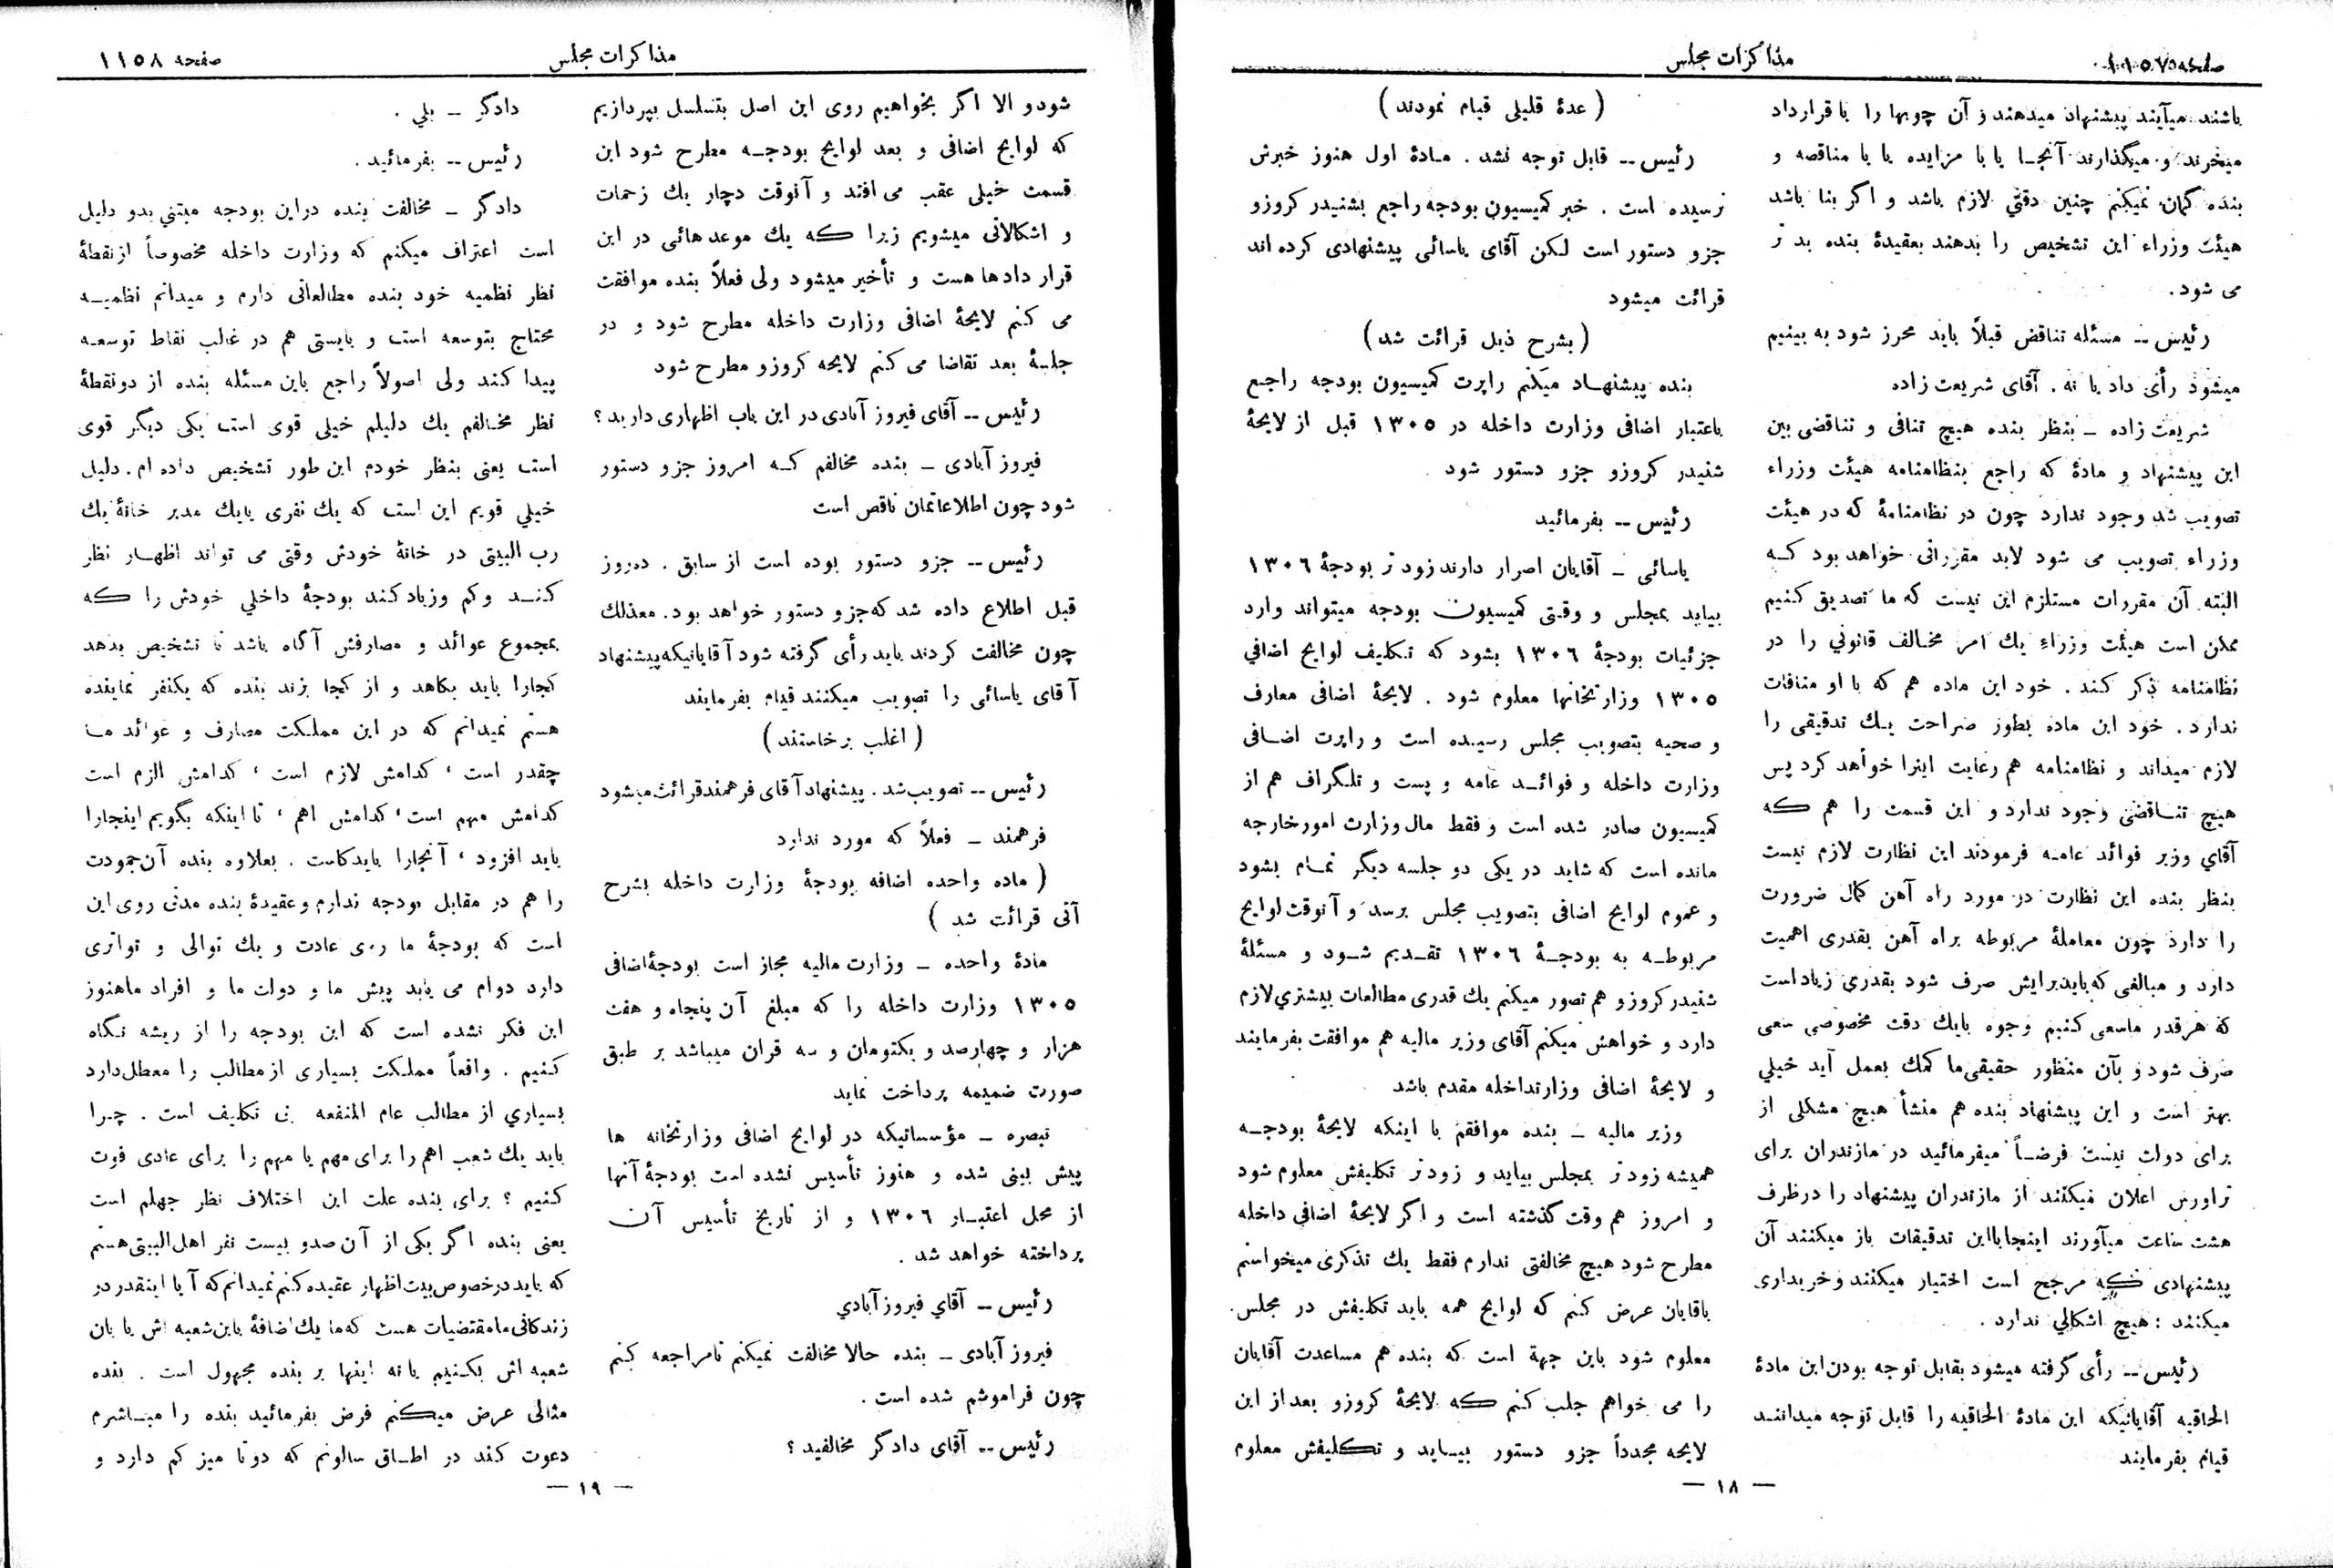 صفحه ۱۱۵۷
مذاکرات مجلس
باشند میآیند پیشنهاد میدهند و آن چوبها را با قرارداد
میخرند و میگذارند آنجا یا با مزایده یا با مناقصه و
بنده گمان نمیکنم چنین دقتی لازم باشد و اگر بنا باشد
هیئت وزراء این تشخیص را بدهند بعقیدهٔ بنده بد تر
می شود.
رئیس -- مسئله تناقض قبلاً باید محرز شود به بینیم
میشود رأی داد یا نه. آقای شریعت زاده
شریعت زاده - بنظر بنده هیچ تنافی و تناقضی بین
این پیشنهاد و مادهٔ که راجع بنظامنامه هیئت وزراء
تصویب شد وجود ندارد چون در نظامنامهٔ که در هیئت
وزراء تصویب می شود لابد مقرراتی خواهد بود که
البته آن مقررات مستلزم این نیست که ما تصدیق کنیم
ممکن است هیئت وزراء یك امر مخالف قانونی را در
نظامنامه ذکر کند. خود این ماده هم که با او منافات
ندارد. خود این ماده بطور صراحت یك تدقیقی را
لازم میداند و نظامنامه هم رعایت اینرا خواهد کرد پس
هیچ تناقضی وجود ندارد و این قسمت را هم که
آقای وزیر فوائد عامه فرمودند این نظارت لازم نیست
بنظر بنده این نظارت در مورد راه آهن کمال ضرورت
را دارد چون معاملهٔ مربوطه براه آهن بقدری اهمیت
دارد و مبالغی که باید برایش صرف شود بقدری زیاد است
که هر قدر ما سعی کنیم وجوه با یك دقت مخصوصی سعی
صرف شود و بآن منظور حقیقی ما کمك بعمل آید خیلی
بهتر است و این پیشنهاد بنده هم منشأ هیچ مشکلی از
برای دولت نیست فرضاً میفرمائید در مازندران برای
تراورس اعلان میکنند از مازندران پیشنهاد را در ظرف
هشت ساعت میآورند اینجا با این تدقیقات باز میکنند آن
پیشنهادی که مرجح است اختیار میکنند و خریداری
میکنند: هیچ اشکالی ندارد.
رئیس -- رأی گرفته میشود بقابل توجه بودن این مادهٔ
الحاقیه آقایانیکه این مادهٔ الحاقیه را قابل توجه میدانند
قیام بفرمایند
(عدهٔ قلیلی قیام نمودند)
رئیس -- قابل توجه نشد. مادهٔ اول هنوز خبرش
نرسیده است. خبر کمیسیون بودجه راجع بشنیدر کروزو
جزو دستور است لکن آقای یاسائی پیشنهادی کرده اند
قرائت میشود
(بشرح ذیل قرائت شد)
بنده پیشنهاد میکنم راپرت کمیسیون بودجه راجع
باعتبار اضافی وزارت داخله در ۱۳۰۵ قبل از لایحهٔ
شنیدر کروزو جزو دستور شود
رئیس -- بفرمائید
یاسائی - آقایان اصرار دارند زود تر بودجهٔ ۱۳۰۶
بیاید بمجلس و وقتی کمیسیون بودجه میتواند وارد
جزئیات بودجهٔ ۱۳۰۶ بشود که تکلیف لوایح اضافی
۱۳۰۵ وزارتخانها معلوم شود. لایحهٔ اضافی معارف
و صحیه بتصویب مجلس رسیده است و راپرت اضافی
وزارت داخله و فوائد عامه و پست و تلگراف هم از
کمیسیون صادر شده است و فقط مال وزارت امور خارجه
مانده است که شاید در یکی دو جلسه دیگر تمام بشود
و عموم لوایح اضافی بتصویب مجلس برسد و آنوقت لوایح
مربوطه به بودجهٔ ۱۳۰۶ تقدیم شود و مسئلهٔ
شنیدر کروزو هم تصور میکنم یك قدری مطالعات بیشتری لازم
دارد و خواهش میکنم آقای وزیر مالیه هم موافقت بفرمایند
و لایحهٔ اضافی وزارتداخله مقدم باشد
وزیر مالیه - بنده موافقم با اینکه لایحهٔ بودجه
همیشه زود تر بمجلس بیاید و زود تر تکلیفش معلوم شود
و امروز هم وقت گذشته است و اگر لایحهٔ اضافی داخله
مطرح شود هیچ مخالفتی ندارم فقط یك تذکری میخواستم
باقایان عرض کنم که لوایح همه باید تکلیفش در مجلس
معلوم شود باین جهة است که بنده هم مساعدت آقایان
را می خواهم جلب کنم که لایحهٔ کروزو بعد از این
لایحه مجدداً جزو دستور بیساید و تکلیفش معلوم
— ۱۸ —
مذاکرات مجلس
صفحه ۱۱۵۸
شود و الا اگر بخواهیم روی این اصل بتسلسل بپردازیم
که لوایح اضافی و بعد لوایح بودجه مطرح شود این
قسمت خیلی عقب می افتد و آنوقت دچار یك زحمات
و اشکالاتی میشویم زیرا که یك موعد هائی در این
قرار دادها هست و تأخیر میشود ولی فعلاً بنده موافقت
می کنم لایحهٔ اضافی وزارت داخله مطرح شود و در
جلسهٔ بعد تقاضا می کنم لایحه کروزو مطرح شود
رئیس -- آقای فیروز آبادی در این باب اظهاری دارید؟
فیروز آبادی - بنده مخالفم که امروز جزو دستور
شود چون اطلاعاتمان ناقص است
رئیس -- جزو دستور بوده است از سابق. ده روز
قبل اطلاع داده شد که جزو دستور خواهد بود. معذلك
چون مخالفت کردند باید رأی گرفته شود آقایانیکه پیشنهاد
آقای یاسائی را تصویب میکنند قیام بفرمایند
(اغلب برخاستند)
رئیس -- تصویب شد. پیشنهاد آقای فرهمند قرائت میشود
فرهمند - فعلاً که مورد ندارد
(ماده واحده اضافه بودجهٔ وزارت داخله بشرح
آتی قرائت شد)
مادهٔ واحده - وزارت مالیه مجاز است بودجهٔ اضافی
۱۳۰۵ وزارت داخله را که مبلغ آن پنجاه و هفت
هزار و چهارصد و یکتومان و سه قران میباشد بر طبق
صورت ضمیمه پرداخت نماید
تبصره - مؤسساتیکه در لوایح اضافی وزارتخانه ها
پیش بینی شده و هنوز تأسیس نشده است بودجهٔ آنها
از محل اعتبار ۱۳۰۶ و از تاریخ تأسیس آن
پرداخته خواهد شد.
رئیس -- آقای فیروز آبادی
فیروز آبادی - بنده حالا مخالفت نمیکنم تا مراجعه کنم
چون فراموشم شده است.
رئیس -- آقای دادگر مخالفید؟
دادگر - بلی.
رئیس -- بفرمائید.
دادگر - مخالفت بنده در این بودجه مبتنی بدو دلیل
است اعتراف میکنم که وزارت داخله مخصوصاً از نقطهٔ
نظر نظمیه خود بنده مطالعاتی دارم و میدانم نظمیه
محتاج بتوسعه است و بایستی هم در غالب نقاط توسعه
پیدا کند ولی اصولاً راجع باین مسئله بنده از دو نقطهٔ
نظر مخالفم یك دلیلم خیلی قوی است یکی دیگر قوی
است یعنی بنظر خودم این طور تشخیص داده ام. دلیل
خیلی قویم این است که یك نفری یا یك مدیر خانهٔ یك
رب البیتی در خانهٔ خودش وقتی می تواند اظهار نظر
کند و کم و زیاد کند بودجهٔ داخلی خودش را که
بمجموع عوائد و مصارفش آگاه باشد تا تشخیص بدهد
کجارا باید بکاهد و از کجا بزند بنده که یکنفر نماینده
هستم نمیدانم که در این مملکت مصارف و عوائد ما
چقدر است، کدامش لازم است، کدامش الزم است
کدامش مهم است، کدامش اهم، تا اینکه بگویم اینجارا
باید افزود، آنجارا باید کاست. بعلاوه بنده آن جمودت
را هم در مقابل بودجه ندارم و عقیدهٔ بنده مدتی روی این
است که بودجهٔ ما روی عادت و یك توالی و تواتری
دارد دوام می یابد پیش ما و دولت ما و افراد ما هنوز
این فکر نشده است که این بودجه را از ریشه نگاه
کنیم. واقعاً مملکت بسیاری از مطالب را معطل دارد
بسیاری از مطالب عام المنفعه بی تکلیف است. چرا
باید یك شعب اهم را برای مهم یا مهم را برای عادی فوت
کنیم؟ برای بنده علت این اختلاف نظر جهلم است
یعنی بنده اگر یکی از آن صدو بیست نفر اهل البیتی هستم
که باید در خصوص بیت اظهار عقیده کنم نمیدانم که آیا اینقدر در
زندگانی ما مقتضیات هست که ما یك اضافهٔ باین شعبه اش یا بان
شعبه اش بکنیم یا نه اینها بر بنده مجهول است. بنده
مثالی عرض میکنم فرض بفرمائید بنده را مباشرم
دعوت کند در اطاق سالونم که دوتا میز کم دارد و
— ۱۹ —